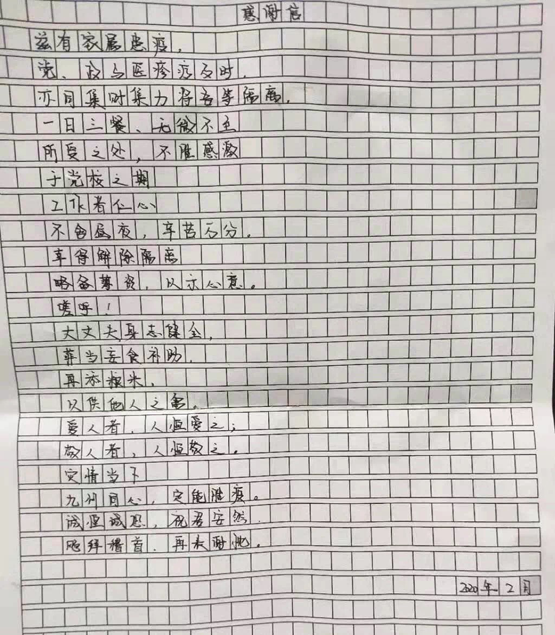 感谢信
兹有家属患疫，
党、政与医疹疗及时，
亦同集时集力将吾等隔离，
一日三餐、无微不至
所受之处，不胜感激
于党校之期
工作者仁心
不舍昼夜，辛苦万分，
幸得解除隔离
略备薄资，以示心意。
嗟乎！
大丈夫身志健全，
弗当妄食补助，
再添粮米，
以供他人之食。
爱人者，人恒爱之；
敬人者，人恒敬之。
灾情当下
九州同心，定能胜疫。
诚惶诚恐，祝君安然
顿拜稽首，再次谢忱。
2020年2月